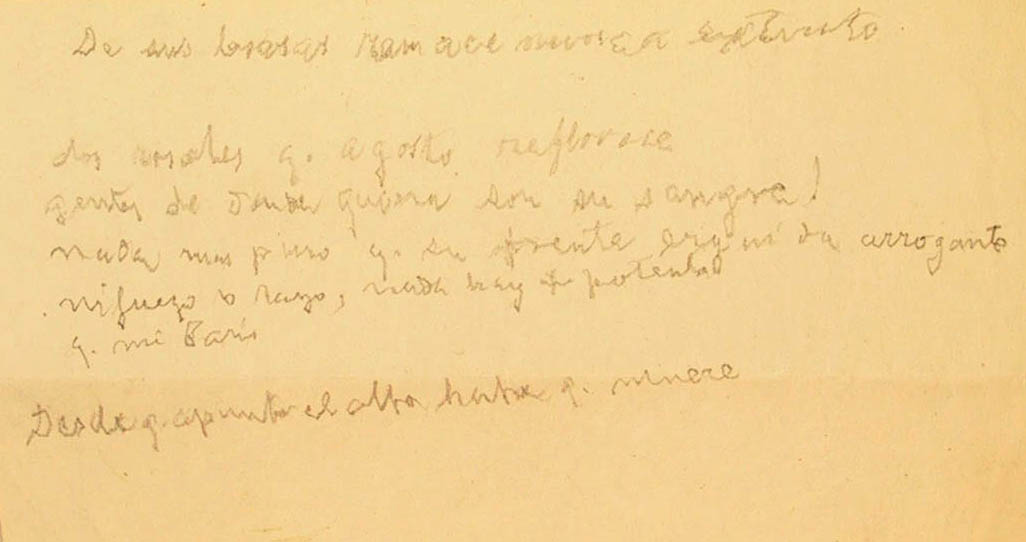 De sus brasas renace nunca extinto.
dos rosales q. agosto reflorece
gentes de donde quiera son su sangre!
nada mas puro q. su frente erguida arrogante
ni fuego o rayo, nada hay + potente
q. mi París
Desde q. apunta el alba hasta q. muere